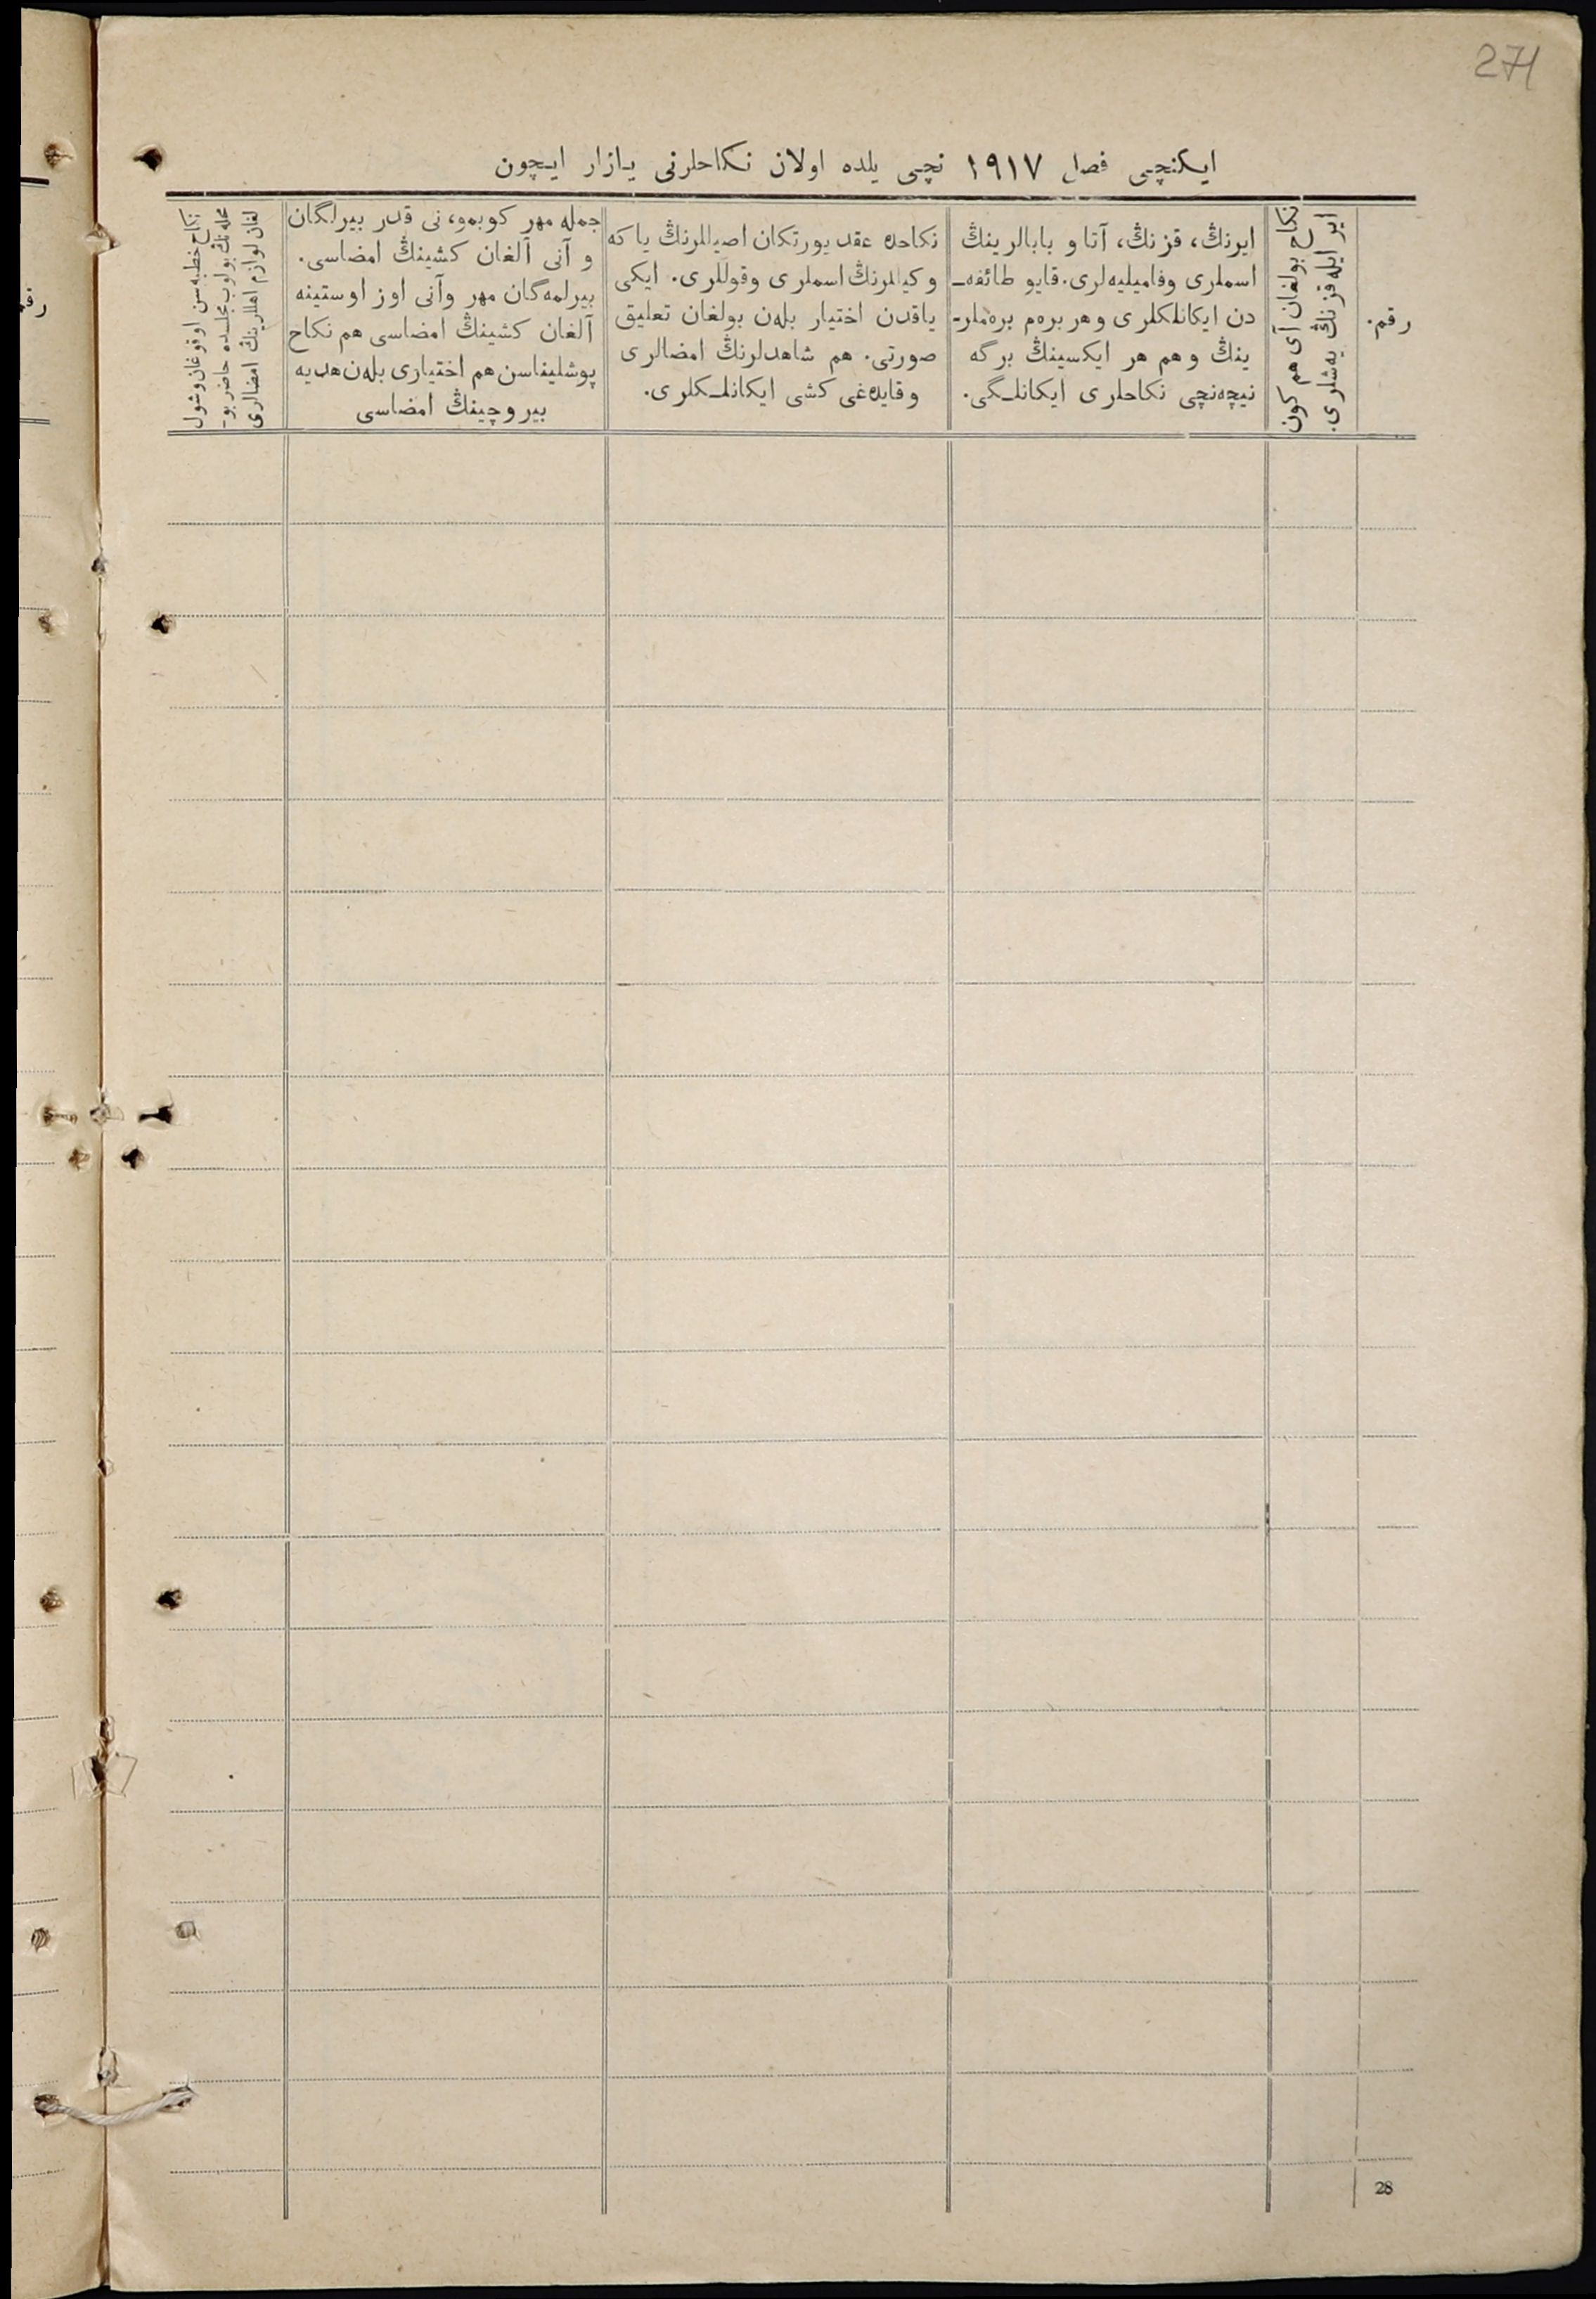 271
ایکنچی فصل ۱۹۱۷ نچی یلده اولان نکاحلرنی یازار ایچون
رقم.
نکاح بولغان آی هم کون
ایر ایله قزنڭ یه‌شلری.
ایرنڭ، قزنڭ، آتا و بابالرینڭ
اسملری وفامیلیه‌لری. قایو طائفه‌ـ
دن ایکانلکلری و هر بره‌م بره‌ملر-
ینڭ و هم هر ایکسینڭ برگه
نیچه‌نچی نکاحلری ایکانلـگی.
نکاحده عقد یورتکان اصیللرنڭ یا که
وکیللرنڭ اسملری وقوللری. ایکی
یاقدن اختیار بله‌ن بولغان تعلیق
صورتی. هم شاهدلرنڭ امضالری
وقایده‌غی کشی ایکانلـکلری.
جمله مهر کوبمو، نی قدر بیرلگان
و آنی آلغان کشینڭ امضاسی.
بیرلمه‌گان مهر وآنی اوز اوستینه
آلغان کشینڭ امضاسی هم نکاح
پوشلیناسن هم اختیاری بله‌ن هدیه
بیروچینڭ امضاسی
نکاح خطبه‌سن اوقوغان وشول
محله‌نڭ بولوب مجلسده حاضر بو-
لغان لوازم اهللرینڭ امضالری
رقم
28